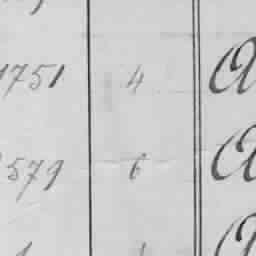 1751 4 A
579 6 A